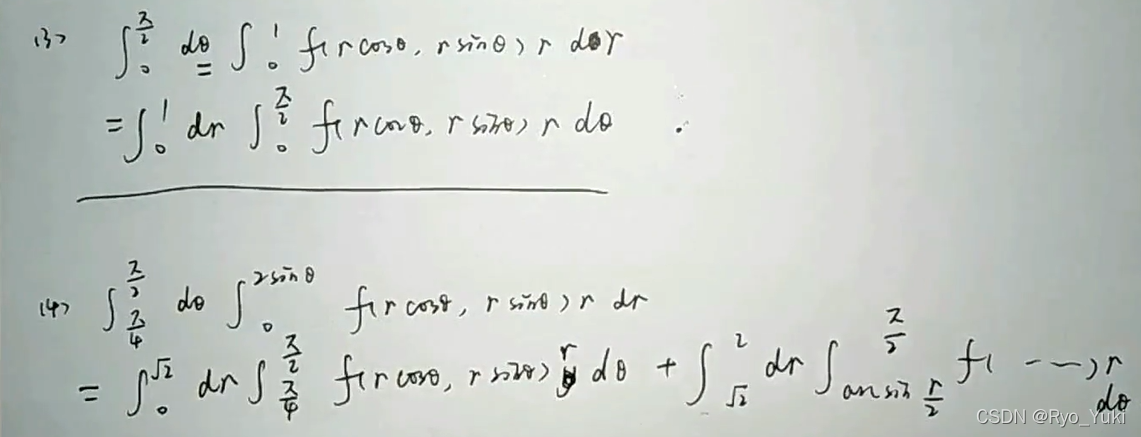 (3) ∫_0^{π/2} dθ ∫_0^1 f(r cosθ, r sinθ) r dr
= ∫_0^1 dr ∫_0^{π/2} f(r cosθ, r sinθ) r dθ
(4) ∫_{π/4}^{π/2} dθ ∫_0^{2sinθ} f(r cosθ, r sinθ) r dr
= ∫_0^{√2} dr ∫_{π/4}^{π/2} f(r cosθ, r sinθ) r dθ + ∫_{√2}^2 dr ∫_{arcsin r/2}^{π/2} f( ---) r dθ
CSDN @Ryo_Yuki